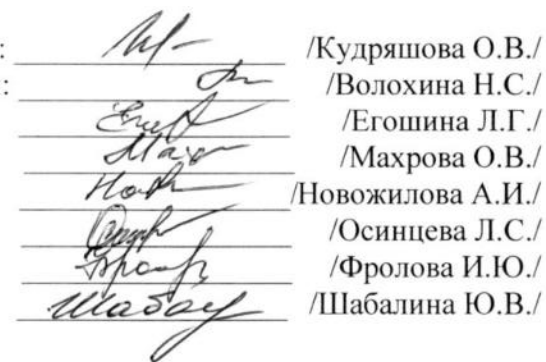 : /Кудряшова О.В./
: /Волохина Н.С./
/Егошина Л.Г./
/Махрова О.В./
/Новожилова А.И./
/Осинцева Л.С./
/Фролова И.Ю./
/Шабалина Ю.В./